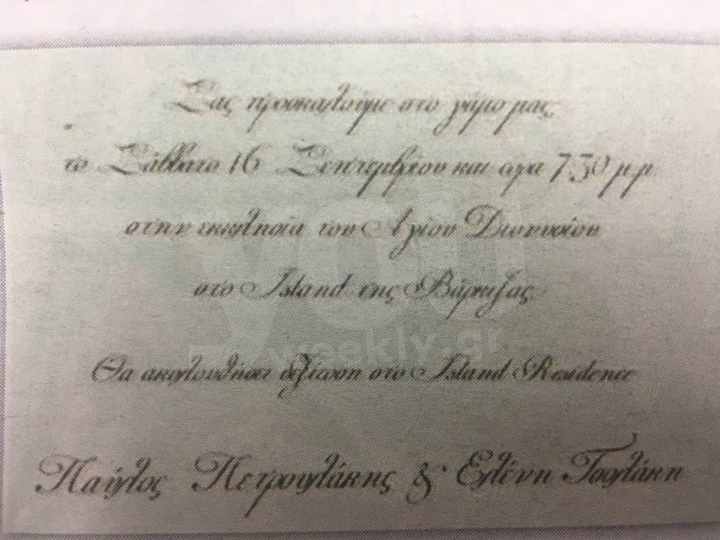 Σας προσκαλούμε στο γάμο μας,
το Σάββατο 16 Σεπτεμβρίου και ώρα 7:30 μ.μ.
στην εκκλησία του Αγίου Διονυσίου
στο Island της Βάρκιζας.
Θα ακολουθήσει δεξίωση στο Island Residence
Παύλος Πετρουλάκης & Ελένη Τσολάκη
weekly.gr